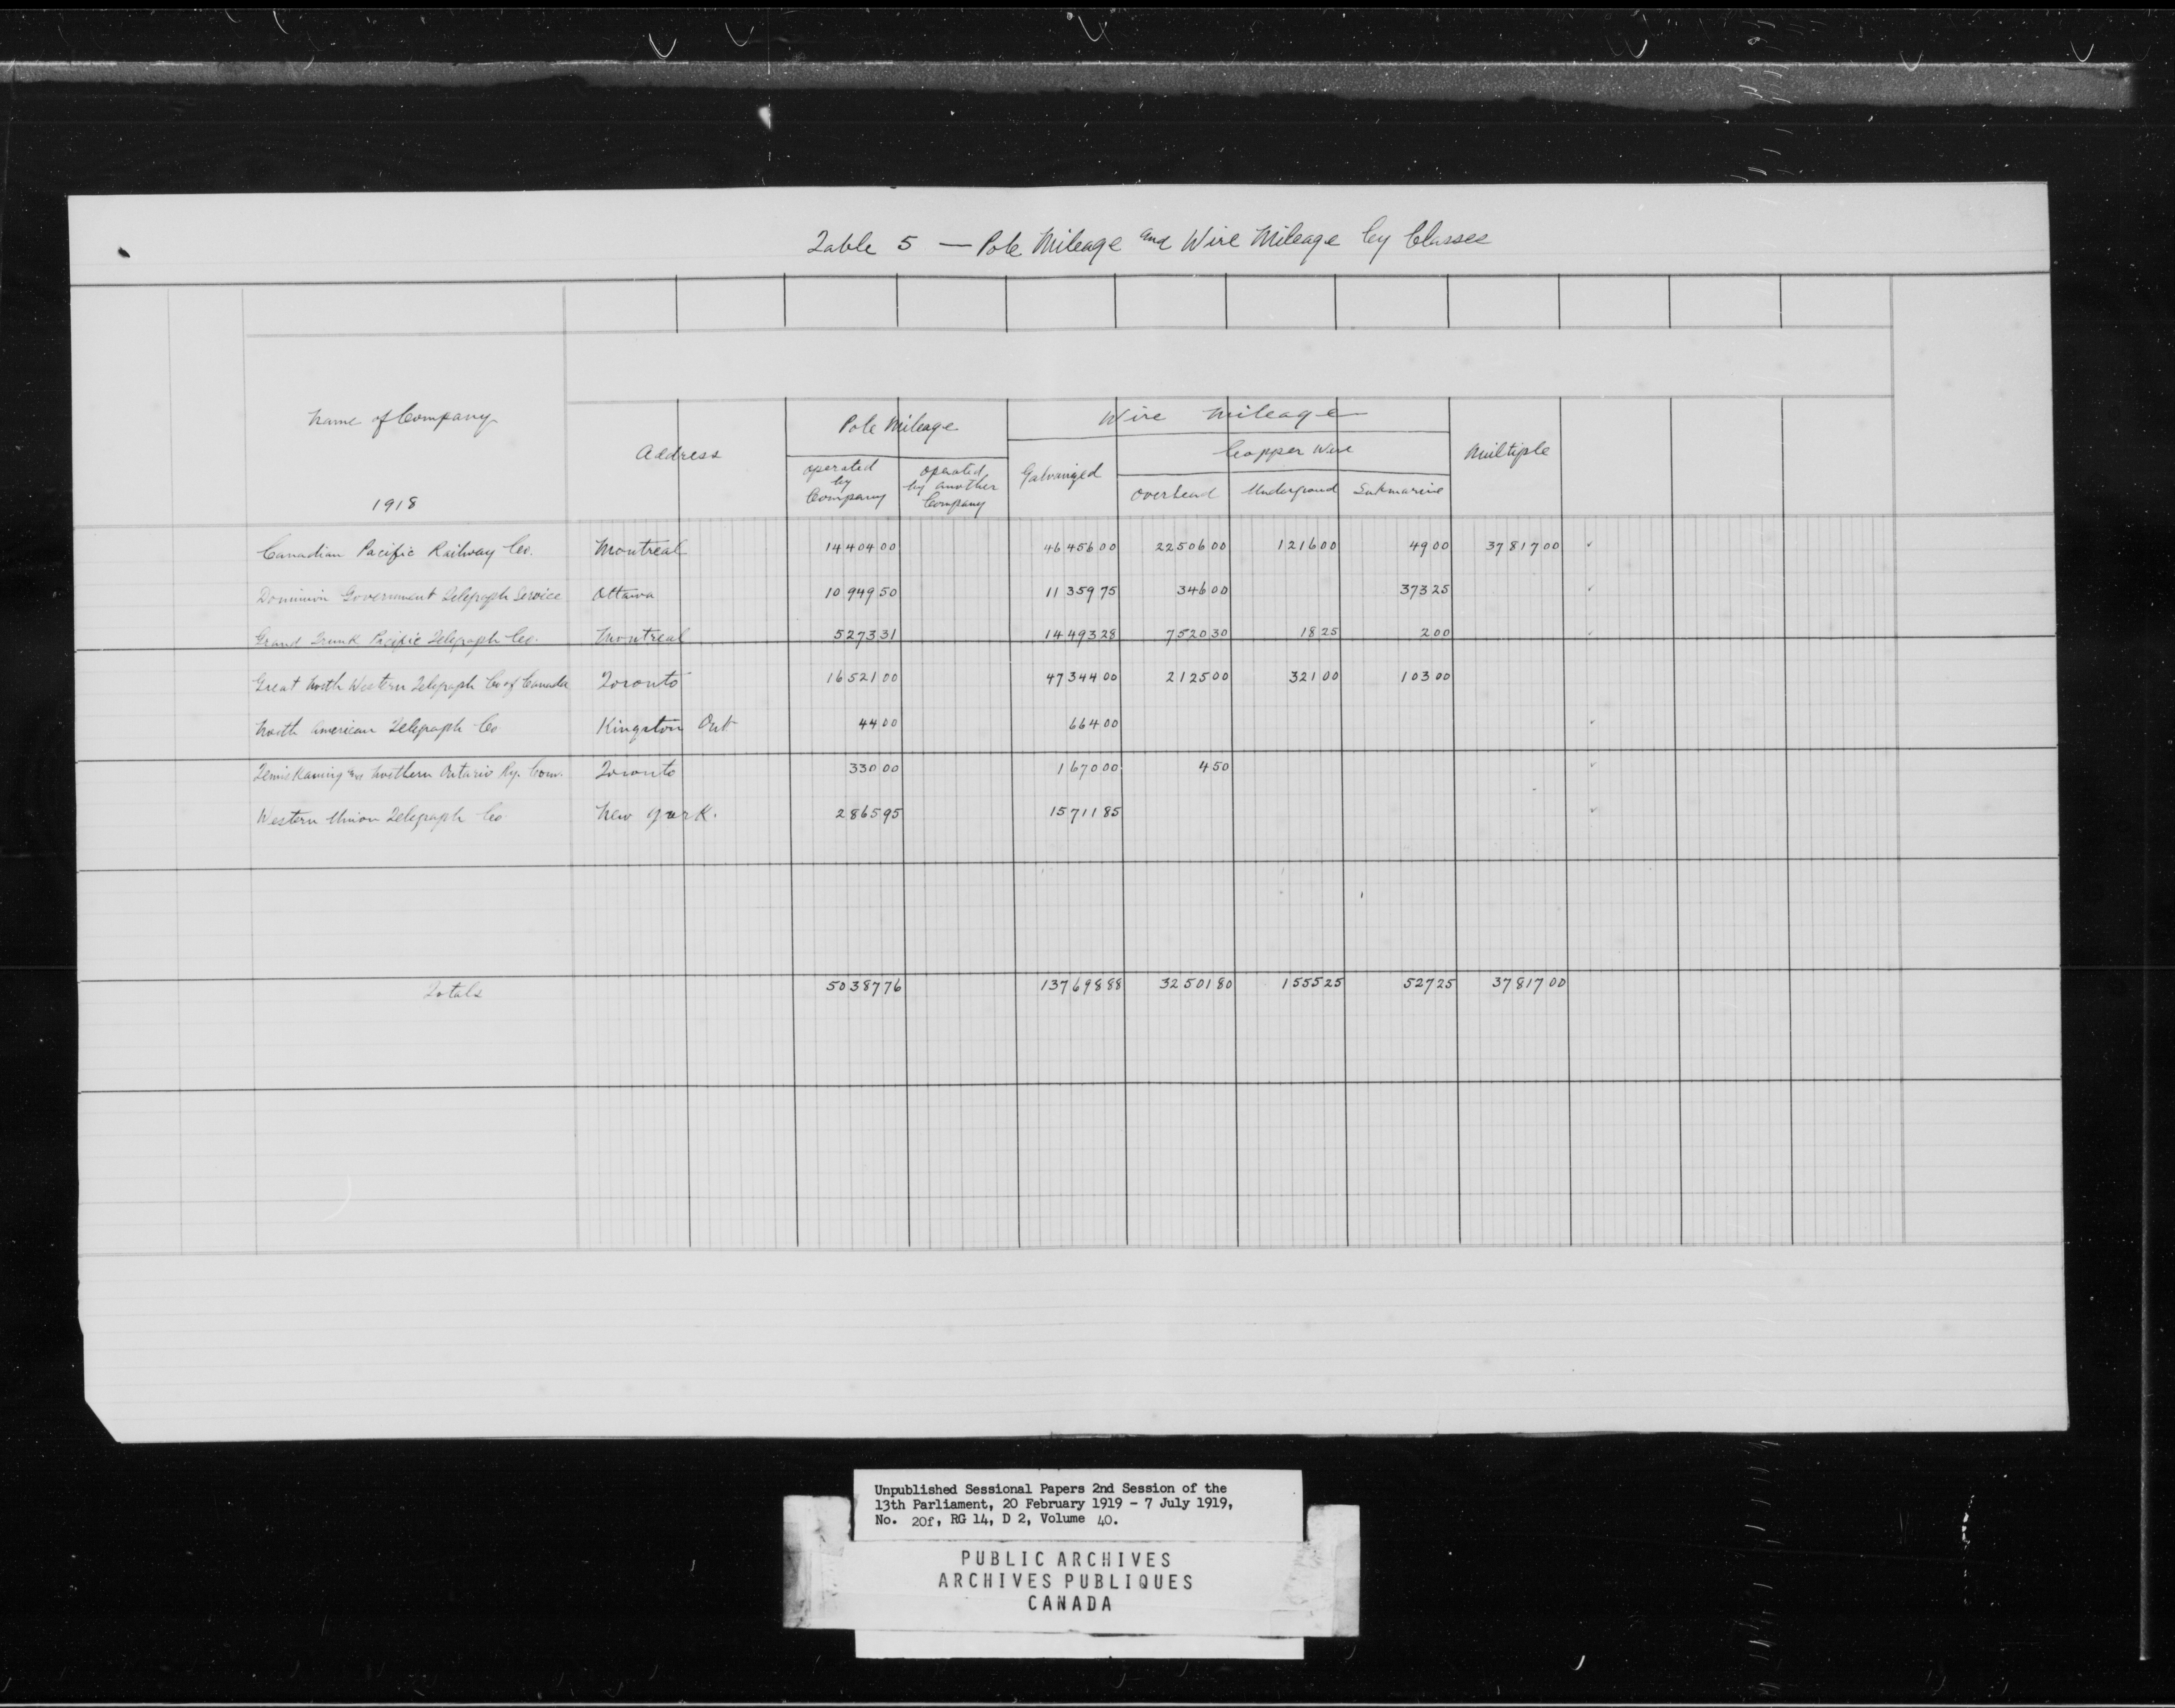 Table 5 — Pole Mileage and Wire Mileage by Classes
Name of Company
1918
Address
Pole Mileage
operated by Company
operated by another Company
Wire Mileage
Galvanized
Copper Wire
overhead Underground Submarine
Multiple
Canadian Pacific Railway Co. Montreal 1440400 4645600 2250600 121600 4900 3781700 ✓
Dominion Government Telegraph Service Ottawa 1094950 1135975 34600 37325 ✓
Grand Trunk Pacific Telegraph Co. Montreal 527331 1449328 752030 1825 200 ✓
Great North Western Telegraph Co of Canada Toronto 1652100 4734400 212500 32100 10300
North American Telegraph Co Kingston Ont 4400 66400 ✓
Temiskaming and Northern Ontario Ry. Com. Toronto 33000 167000 450 ✓
Western Union Telegraph Co New York. 286595 1571185 ✓
Totals 5038776 13769888 3250180 155525 52725 3781700
Unpublished Sessional Papers 2nd Session of the
13th Parliament, 20 February 1919 - 7 July 1919,
No. 20f, RG 14, D 2, Volume 40.
PUBLIC ARCHIVES
ARCHIVES PUBLIQUES
CANADA